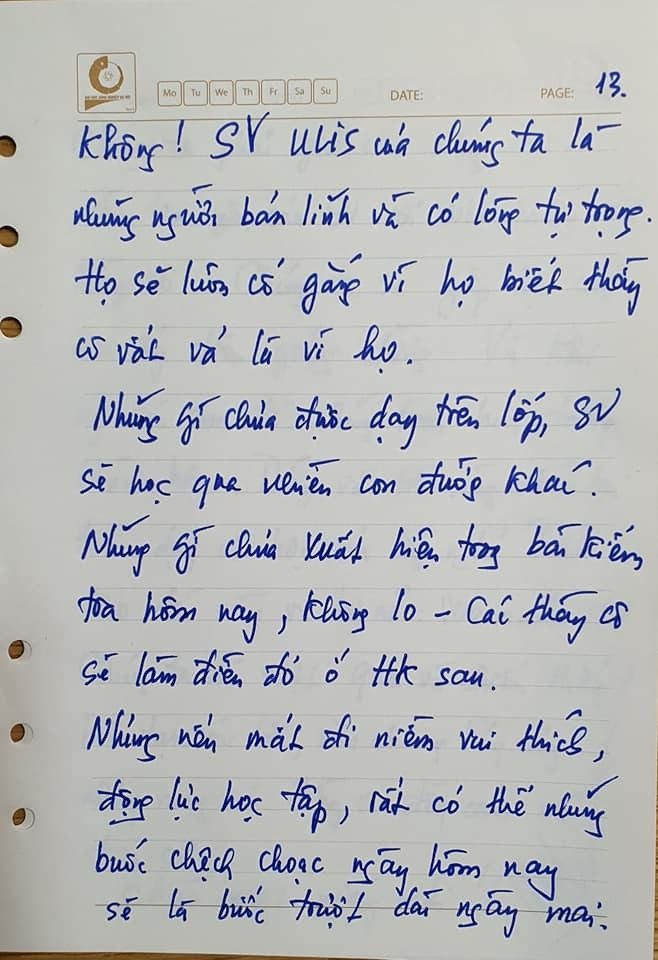 Mo Tu We Th Fr Sa Su DATE: PAGE: 13.
Không! SV ULIS của chúng ta là
những người bản lĩnh và có lòng tự trọng.
Họ sẽ luôn cố gắng vì họ biết thầy
cô vất vả là vì họ.
Những gì chưa được dạy trên lớp, SV
sẽ học qua nhiều con đường khác.
Những gì chưa xuất hiện trong bài kiểm
tra hôm nay, không lo – Các thầy cô
sẽ làm điều đó ở HK sau.
Nhưng nếu mất đi niềm vui thích,
động lực học tập, rất có thể những
bước chệch choạc ngày hôm nay
sẽ là bước trượt dài ngày mai.